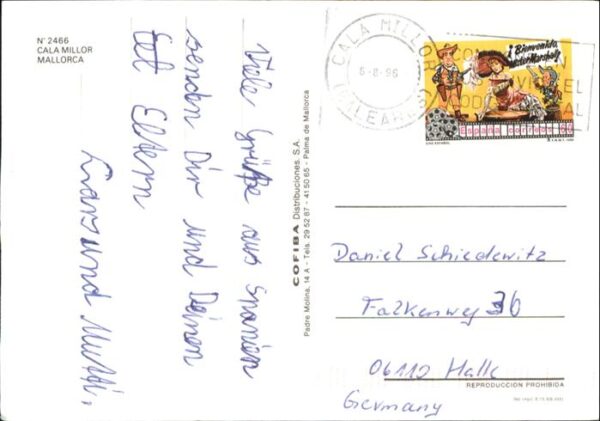 Nº 2466
CALA MILLOR
MALLORCA
Viele Grüße aus Spanien
senden Dir und Deinen
Eltern
und Mutti.
COFIBA Distribuciones, S.A.
Padre Molina, 14 A - Tels. 29 52 87 - 41 50 65 - Palma de Mallorca
CALA MILLOR
6-8-96
BALEARES
¡Bienvenido,
Mister Marshall!
España correos
CINE ESPAÑOL
Daniel Schiedewitz
Falkenweg 36
06112 Halle
Germany
REPRODUCCION PROHIBIDA